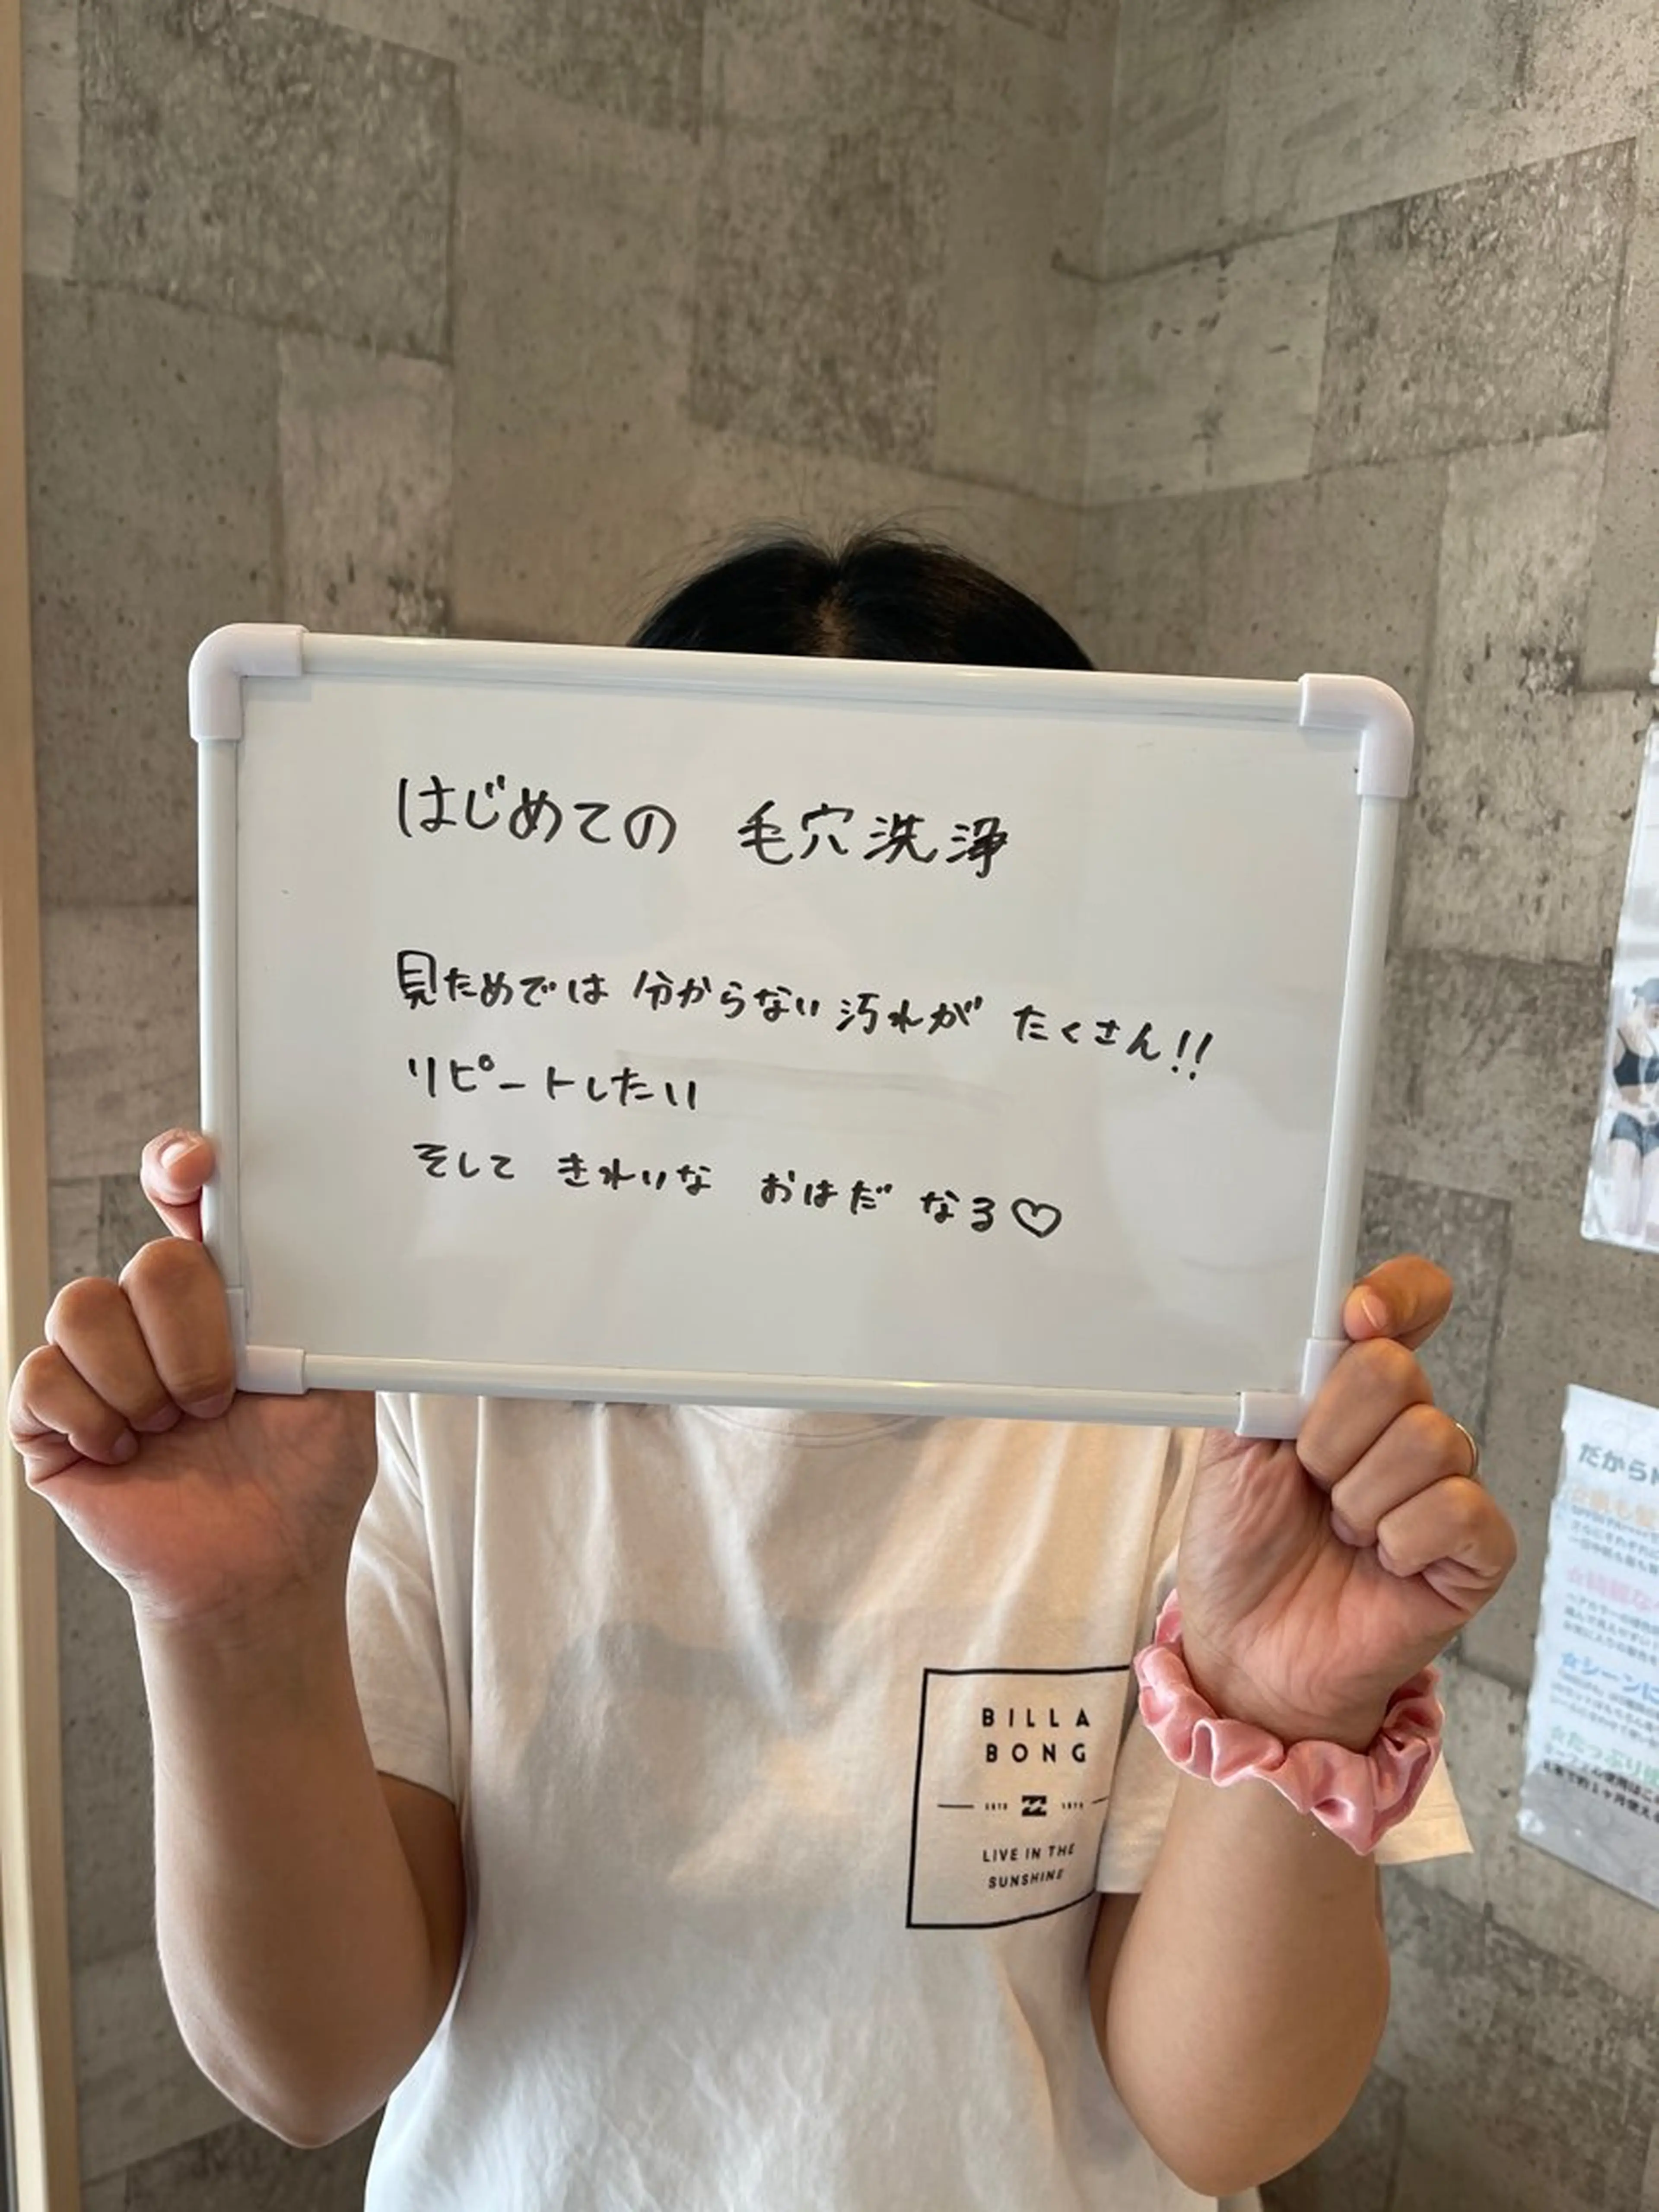 はじめての 毛穴洗浄
見ためでは 分からない 汚れが たくさん!!
リピートしたい
そして きれいな おはだ なる♡
BILLA
BONG
LIVE IN THE
SUNSHINE
だから